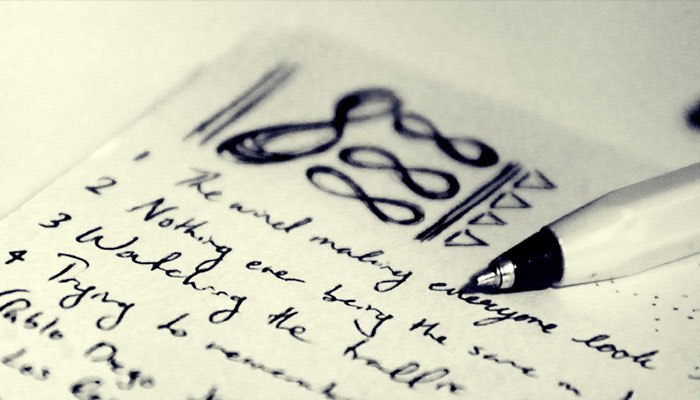 1 The wind making everyone look
2 Nothing ever being the same in
3 Watching the traffic
4 Trying to remember
(Pablo Diego
Los